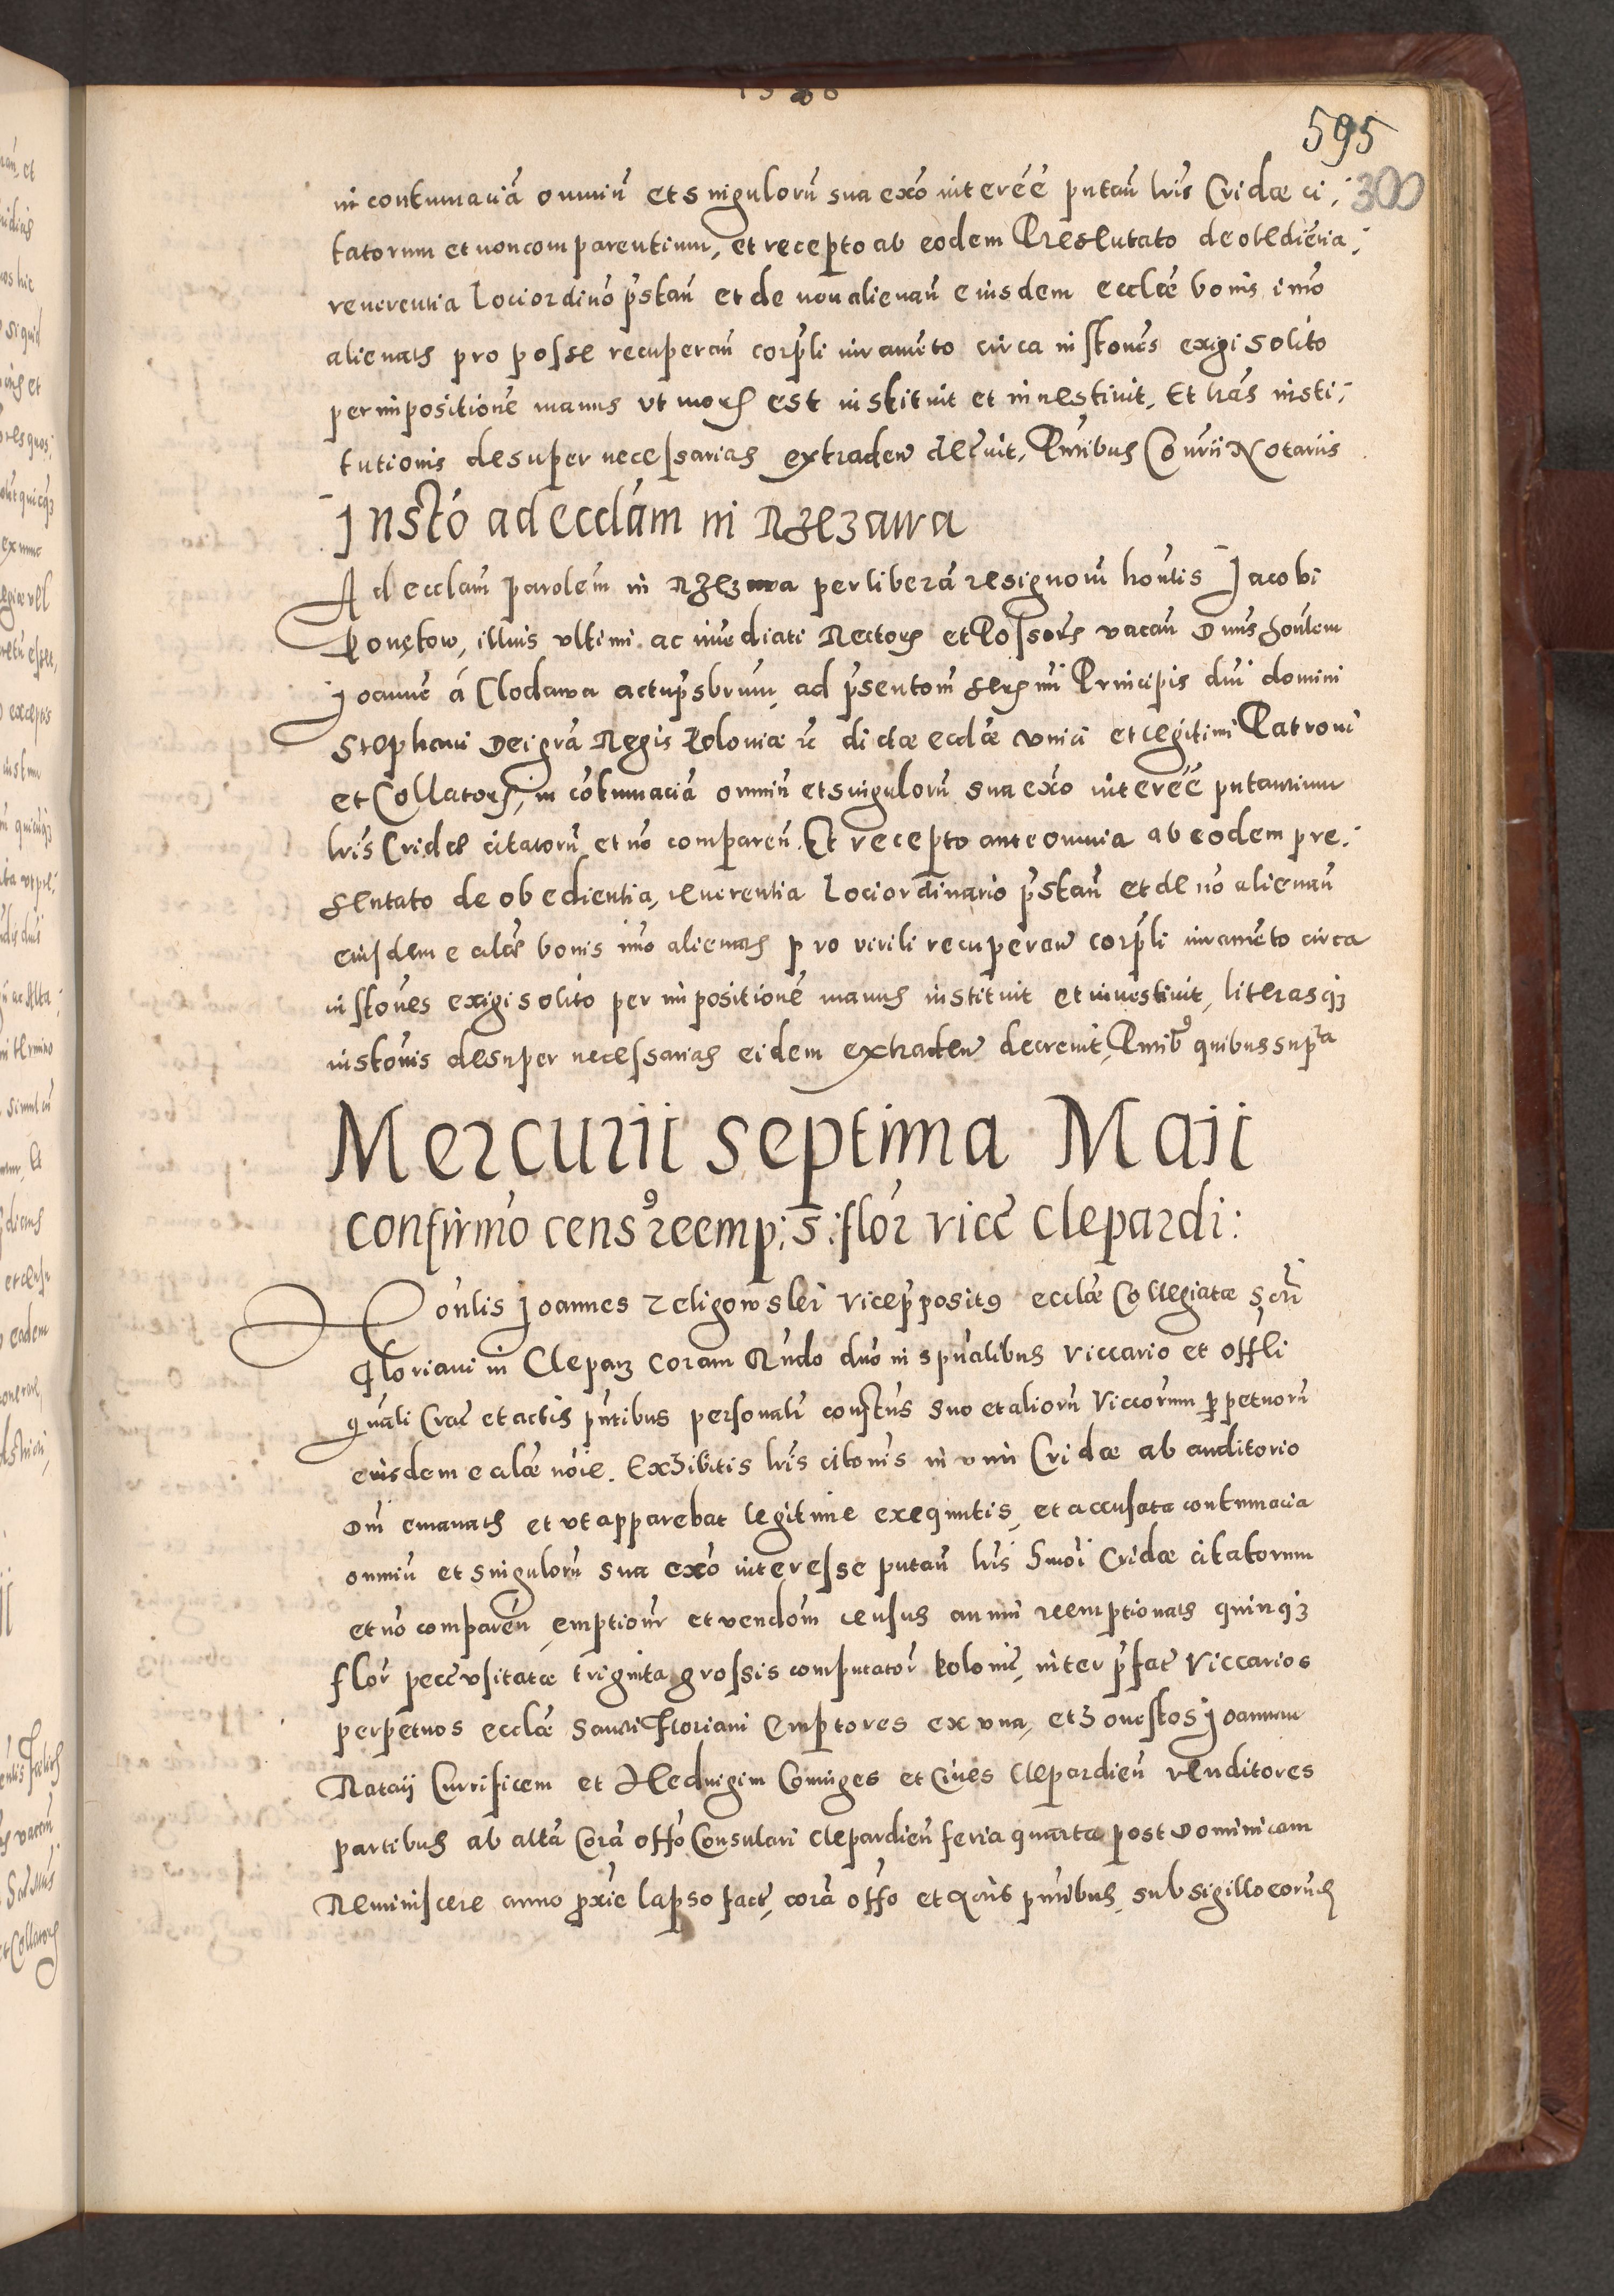 595
300
in contumaciā omniū et singulorū sua exō intereēē putan̄ lrīs Cridæ ci
tatorum et non comparentium, et recepto ab eodem Presentato de obediētia,
reverentia Loci ordinō pr̄stan̄ et de non alienan̄ eiusdem eccl̄æ bonis imō
alienatis pro posse recuperan̄ corpr̄li iuramēto circa instōnes exigi solito
per impositionē manus ut moris est instituit et investivit, Et lrās insti
tutionis desuper necessarias extraden̄ decr̄vit, Prn̄tibus Consr̄ii Notariis
Instō ad eccl̄am in Rzezawa
Ad eccl̄am parolēm in Rzezawa per liberā resignoēm honl̄is Jacobi
Ponętow, illius ultimi ac imediati Rectoris et Possoris vacan̄ Dnūs honl̄em
Joannē á Clodawa actu pr̄sbrūm, ad pr̄sentoēm Serſmi Principis dn̄i domini
Stephani Dei grā Regis Poloniæ rc̄ dictæ eccl̄æ unici et legitimi Patroni
et Collatoris, in cōtumaciā omniū et singulorū sua exō intereēē putantium
lrīs Cridæ citatorū et nō comparen̄. Et recepto ante omnia ab eodem pre
sentato de obedientia, reverentia Loci ordinario pr̄stan̄ et de nō alienan̄
eiusdem eccl̄æ bonis imō alienatis pro virili recuperan̄ corpr̄li iuramēto circa
instōnes exigi solito per impositionē manus instituit et investivit, literasqȝ
instōnis desuper necessarias eidem extraden̄ decrevit, Prn̄tibꝰ quibus supra
Mercurii septima Maii
Confirmō censꝰ reemp: 5: flor vicc̄ Clepardi:
Honl̄is Joannes Zeligowski vicepr̄positꝰ eccl̄æ Collegiatæ Sctī
Floriani in Cleparz coram Rn̄do dnō in spūalibus Viccario et Offl̄i
gnāli Crac̄ et actis pn̄tibus personalr̄ constn̄s suo et aliorū Viccorum perpetuorū
eiusdem eccl̄æ nōie. Exhibitis lrīs citōnis in vim Cridæ ab auditorio
Dn̄i emanatis et ut apparebat legitime exequutis, et accusata contumacia
omniū et singulorū sua exō interesse putan̄ lrīs hmōi Cridæ citatorum
et nō comparen̄, emptionē et vendoēm census annui reemptionalis quinqȝ
flor̄ pecc̄ usitatæ triginta grossis computator̄ Polonic̄, inter pr̄fat̄ Viccarios
perpetuos eccl̄æ Sancti Floriani Emptores ex una, et honestos Joannem
Rataij Currificem et Hedvigim Coniuges et Cives Clepardien̄ venditores
partibus ab altā Corā offō Consulari Clepardien̄ feria quarta post Dominicam
Reminiscere anno proxīe lapso fact̄, corā offō et actis pn̄tibus, sub sigillo eorund̄